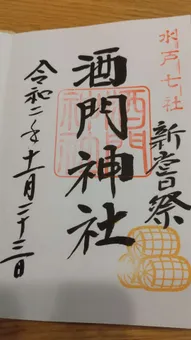 水戸七社
新嘗祭
酒門神社
令和二年十一月二十三日